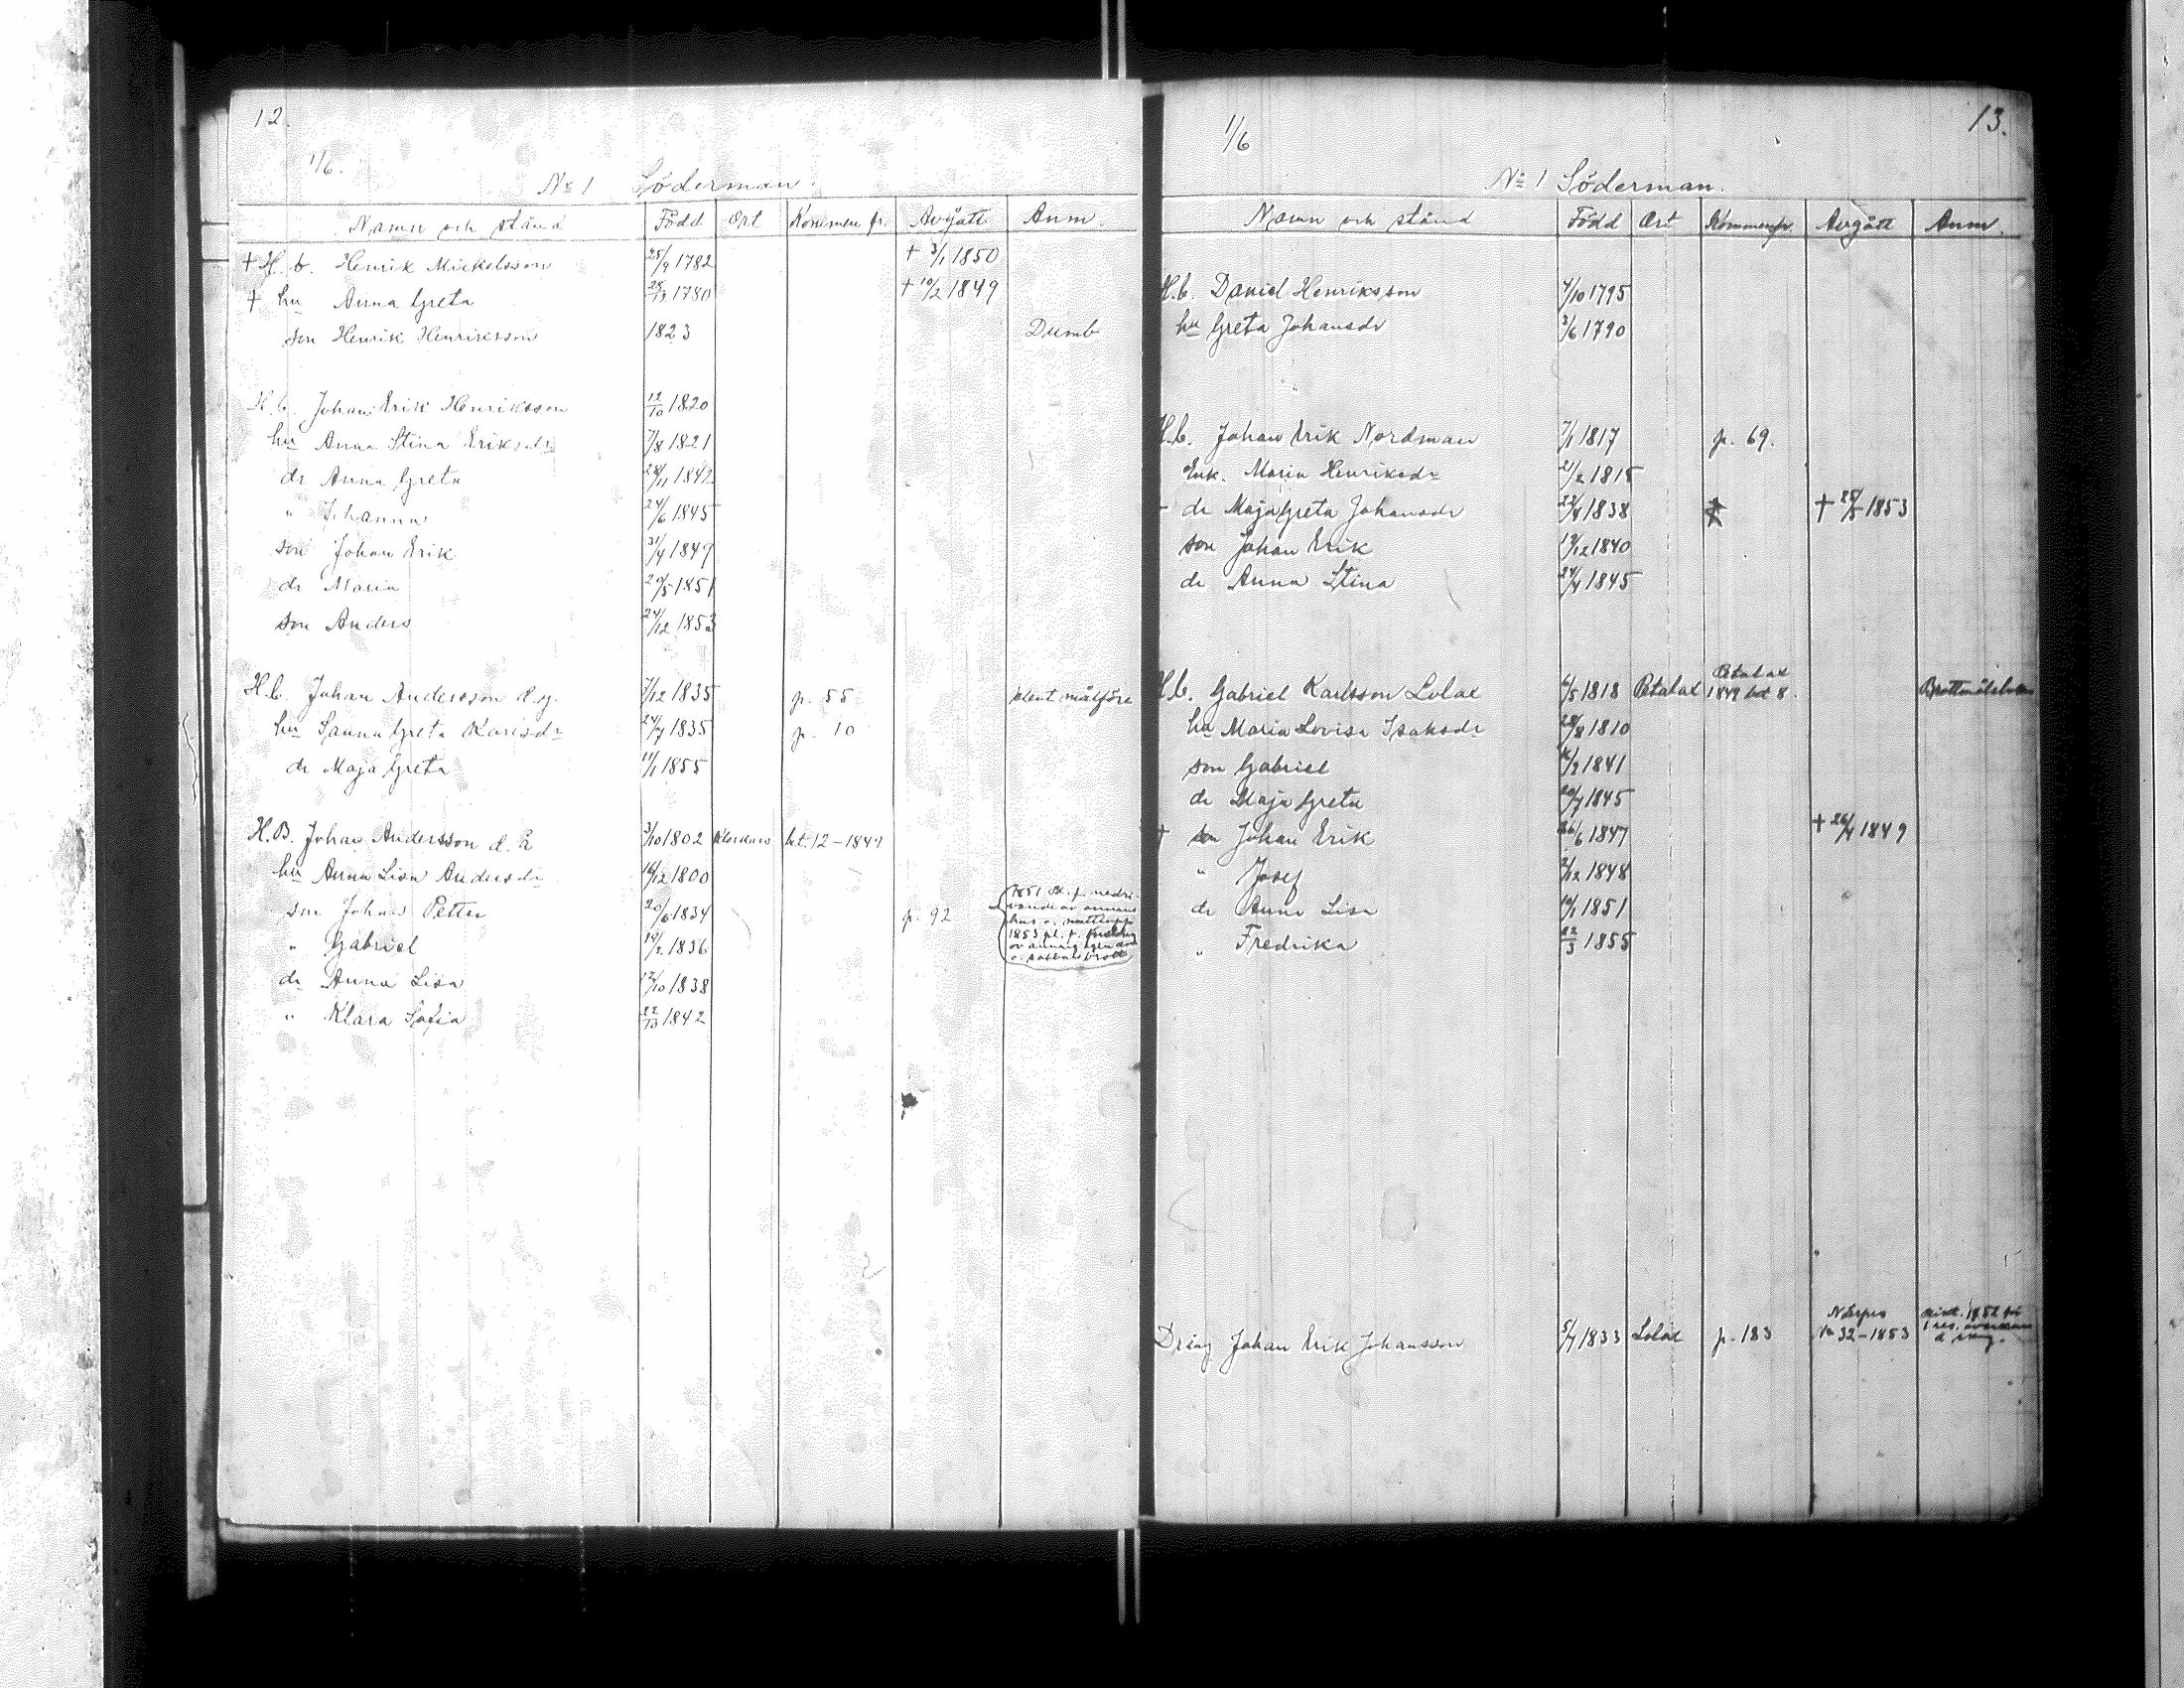 12.
1/6.
No 1 Söderman.
Namn och stånd Född Ort Kommen fr. Avgått Anm.
† H. b. Henrik Mickelsson 25/9 1782 † 3/1 1850
† hu Anna Greta 1780 † 10/2 1849
son Henrik Henriksson 1823 Dumb
H. b. Johan Erik Henriksson 12/10 1820
hu Anna Stina Eriksdr 7/8 1821
dr Anna Greta 28/11 1842
" Johanna 24/6 1845
son Johan Erik 1849
dr Maria 20/5 1851
son Anders 24/12 1853
H. b. Johan Andersson d. y. 7/12 1835 p. 55 målföre
hu Sanna Greta Karlsdr 24/7 1835 p. 10
dr Maja Greta 1855
H. B. Johan Andersson d. ä 3/10 1802 bet. 12 - 1849
hu Anna Lisa Andersdr 1800
son Johan Petter 20/6 1834 p. 92
" Gabriel 19/2 1836
dr Anna Lisa 12/10 1838
" Klara Sofia 22/10 1842
13.
1/6
No 1 Söderman.
Namn och stånd Född Ort Kommen fr. Avgått Anm.
H. b. Daniel Henriksson 4/10 1795
hu Greta Johansdr 3/6 1790
H. b. Johan Erik Nordman 7/1 1817 p. 69.
Enk. Maria Henriksdr 21/2 1815
dr Maja Greta Johansdr 22/4 1838 † 1853
son Johan Erik 1840
dr Anna Stina 24/4 1845
Petalax
H. b. Gabriel Karlsson Lolax 6/5 1818 Petalax 1849 bet 8.
hu Maria Lovisa Isaksdr 28/8 1810
son Gabriel 1841
dr Maja Greta 20/7 1845
† son Johan Erik 26/6 1847 † 26/4 1849
" Josef 1848
dr Anna Lisa 1851
" Fredrika 22/3 1855
Närpes
Dräng Johan Erik Johansson 5/7 1833 Lolax p. 183 32 - 1853